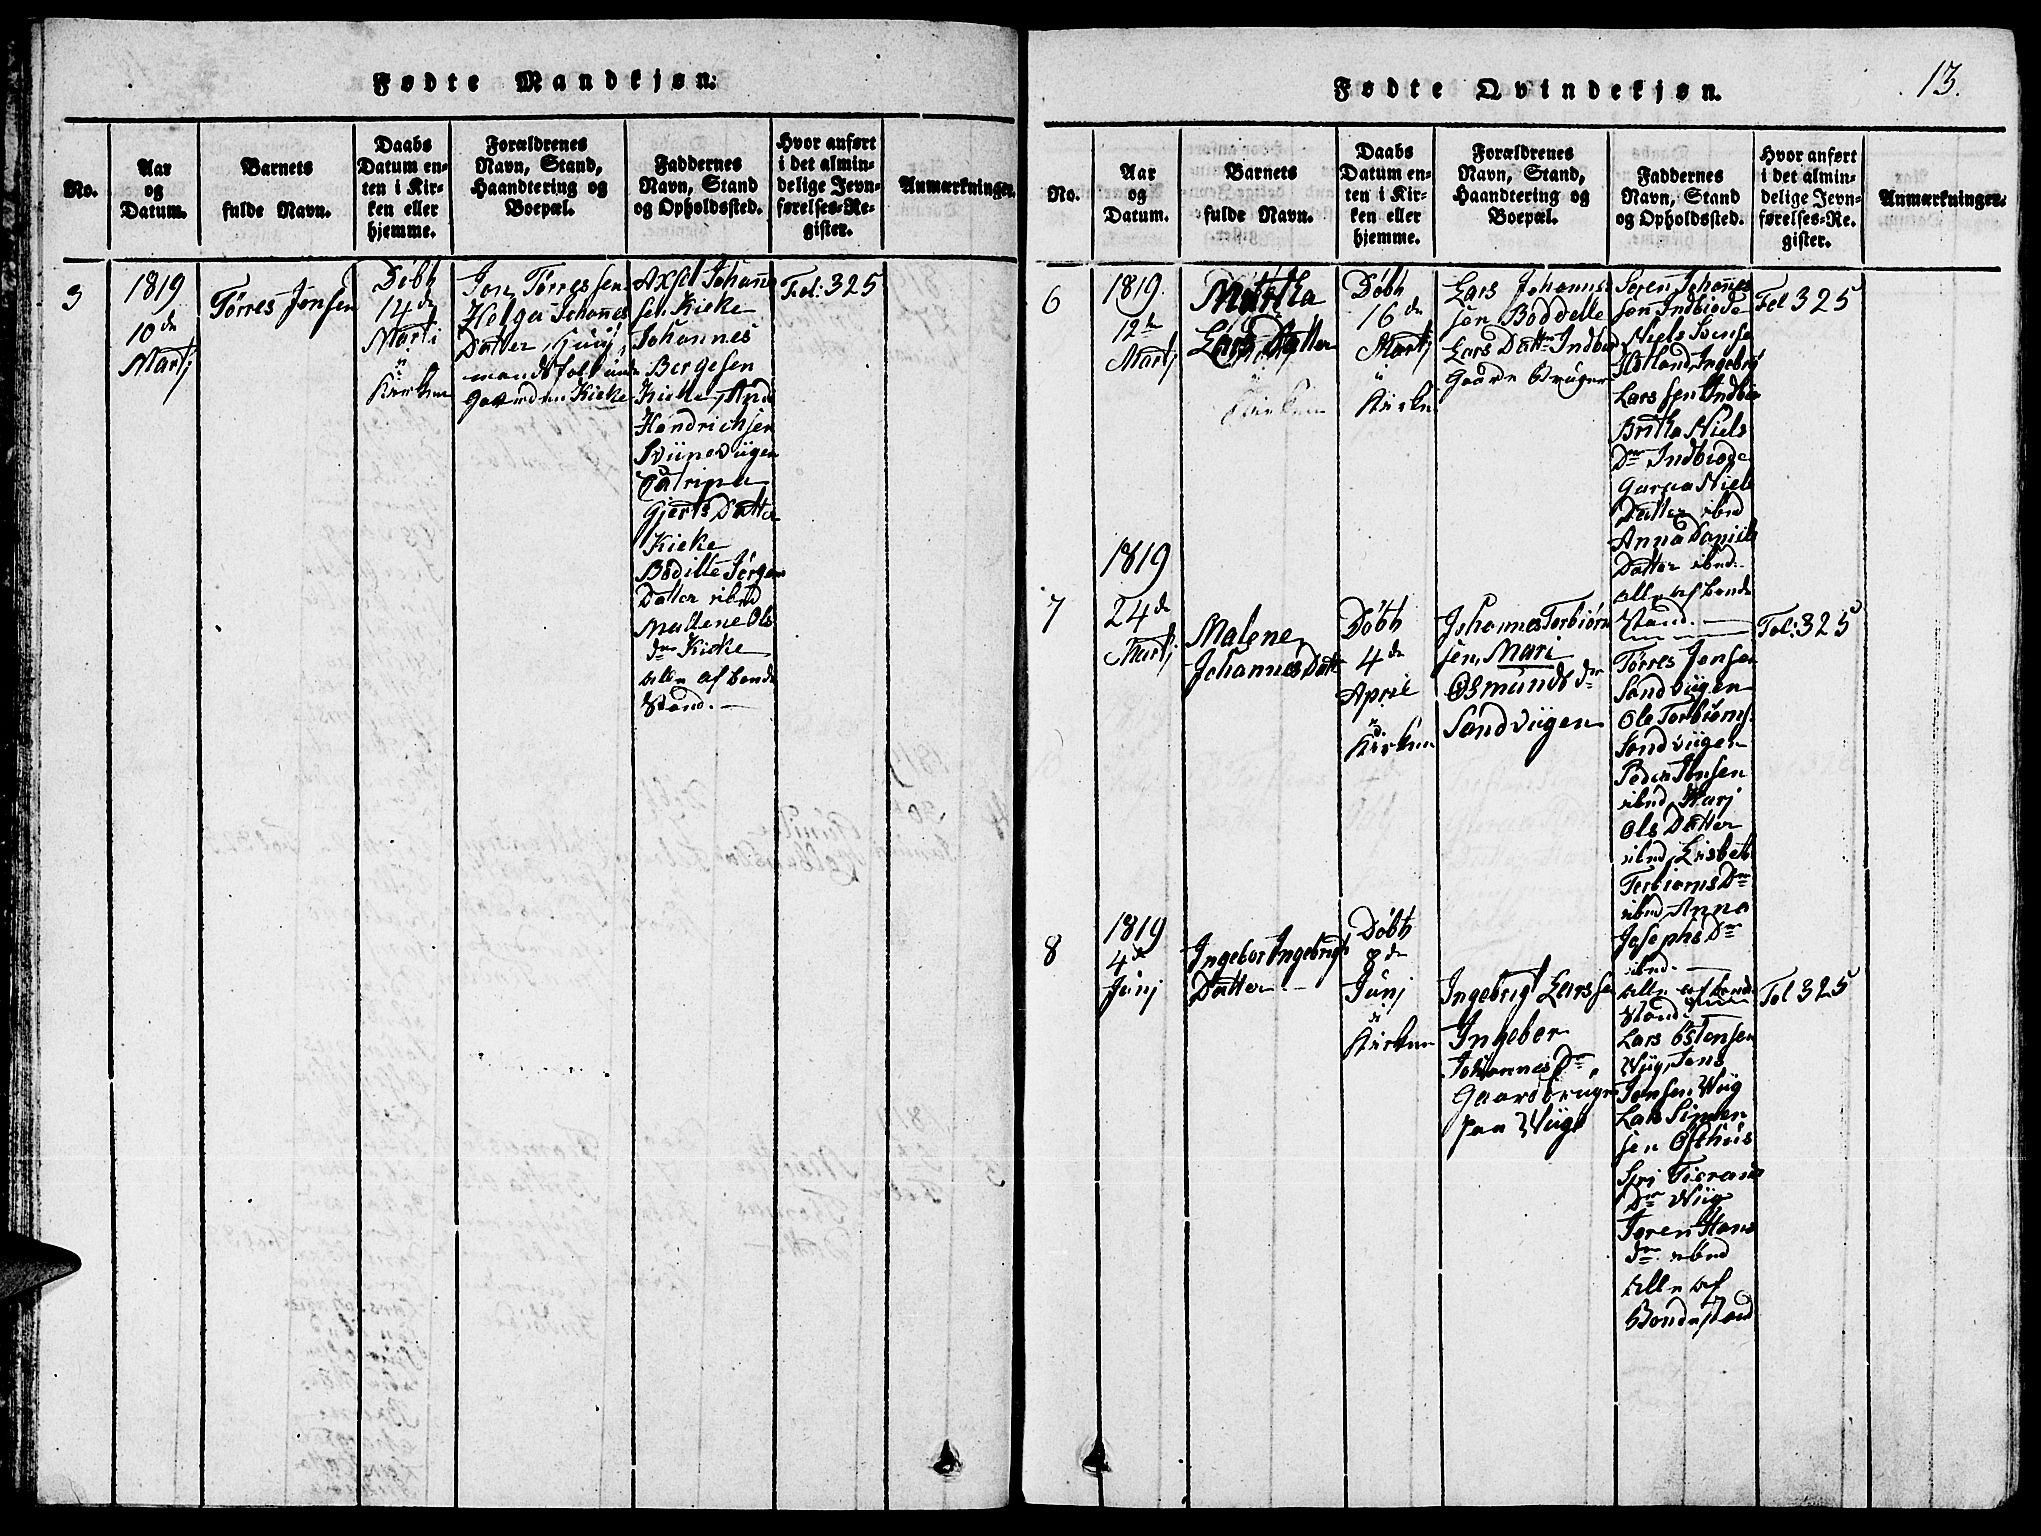 Fødte Mandkjøn.
No.
Aar
og
Datum.
Barnets
fulde Navn.
Daabs
Datum en-
ten i Kir-
ken eller
hjemme.
Forældrenes
Navn, Stand,
Haandtering og
Boepæl.
Faddernes
Navn, Stand
og Opholdssted.
Hvor anført
i det almin-
delige Jevn-
førelses-Re-
gister.
Anmærkninger.
3
1819
10de
Martj
Tørres Jonsen
Døbt
14de
Marti
i
Kirken
Jon Tørressen
Helga Johannes
Datter,
Kieke
Axsel Johann
sen Kieke
Johannes
Bergesen
Kieke, And
Hendrichsen
Sviinevigen
Catrina
Gjerts Datter
Kieke
Bodille Jørgens
Datter ibnd
Mallene Ols
dr Kieke
alle af bonde
Stand.
Fol: 325
Fødte Qvindekjøn.
13.
No.
Aar
og
Datum.
Barnets
fulde Navn.
Daabs
Datum en-
ten i Kir-
ken eller
hjemme.
Forældrenes
Navn, Stand,
Haandtering og
Boepæl.
Faddernes
Navn, Stand
og Opholdssted.
Hvor anført
i det almin-
delige Jevn-
førelses-Re-
gister.
Anmærkninger.
6
1819
12te
Martj
Martha
Lars Datter
Døbt
16de
Martj
i
Kirken
Lars Johannes
sen Boddelle
Lars Dattr Indbiø
Gaard Bruger
Søren Johannes
sen Indbiøde
Niels Svense
Ingebrigt
Larssen Indbiø
Britha Niels
Dr Indbiøde
Niels
Datter ibnd
Anna Daniels
Datter ibnd.
alle af bonde
Stand.
Fol 325
7
1819
24de
Martj
Malene
Johannes Datt
Døbt
4de
April
i
Kirken
Johannes Torbiørn
sen, Mari
Osmunds dr
Sandviigen
Tørres Jonsen
Sandviigen
Ole Torbiørns
Sandviigen
Peder Jonsen
ibnd, Marj
Ols Datter
ibnd, Lisbet
Torbiørns Dr
ibnd, Anna
Josephs Dr
ibnd.
alle af bonde
Stand.
Fol: 325
8
1819
4de
Junj
Ingebor Ingebrigts
Datter
Døbt
8de
Junj
i
Kirken
Ingebrigt Larssen
Ingebor
Johannes Dr
Gaardbruger
paa Wiig
Lars Østensen
Wiig, Jens
Jensen Wiig
Lars Simon
sen Østhus
Siri
Dr Wiig
Joren Hans
dr ibnd
alle af
Bondestand
Fol 325